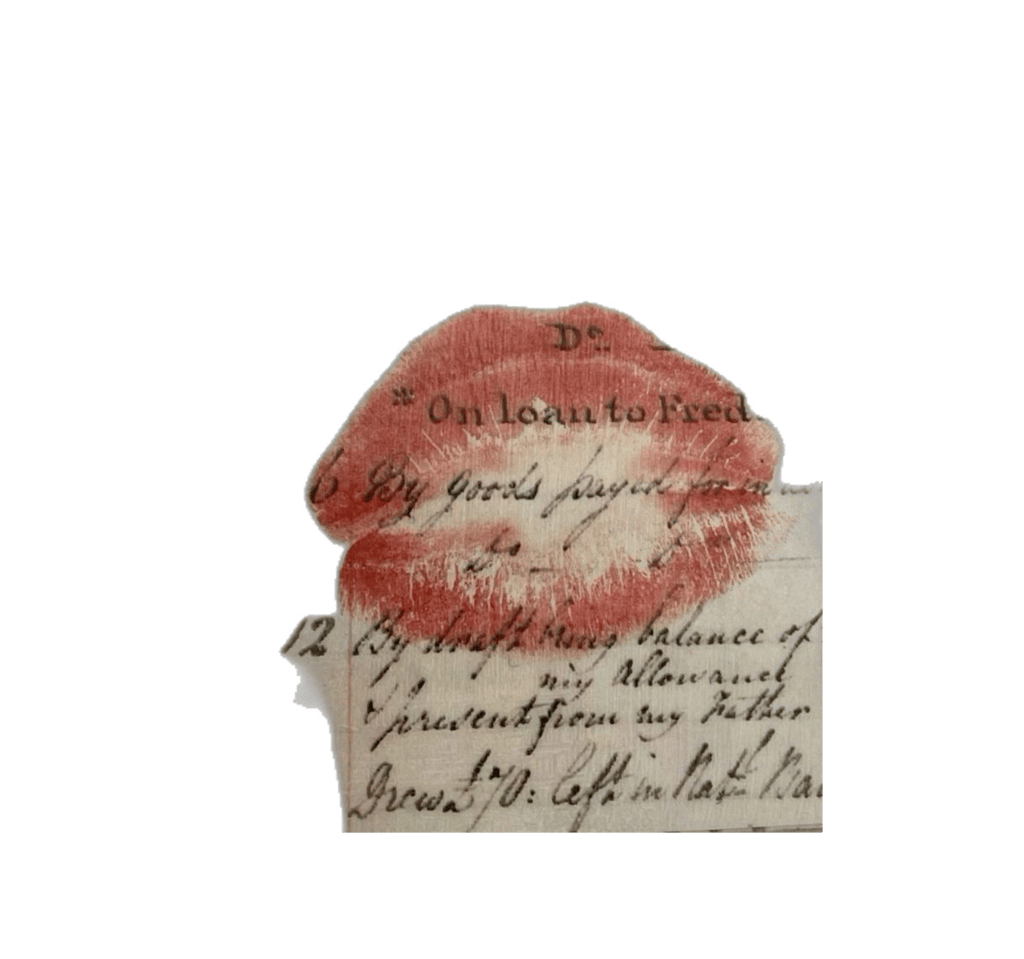 Do
* On loan to Fred.
6 By goods payed for in
Do - Do
12 By draft being balance of
my allowance
& present from my Father
Drew £70: left in Natl. Ba